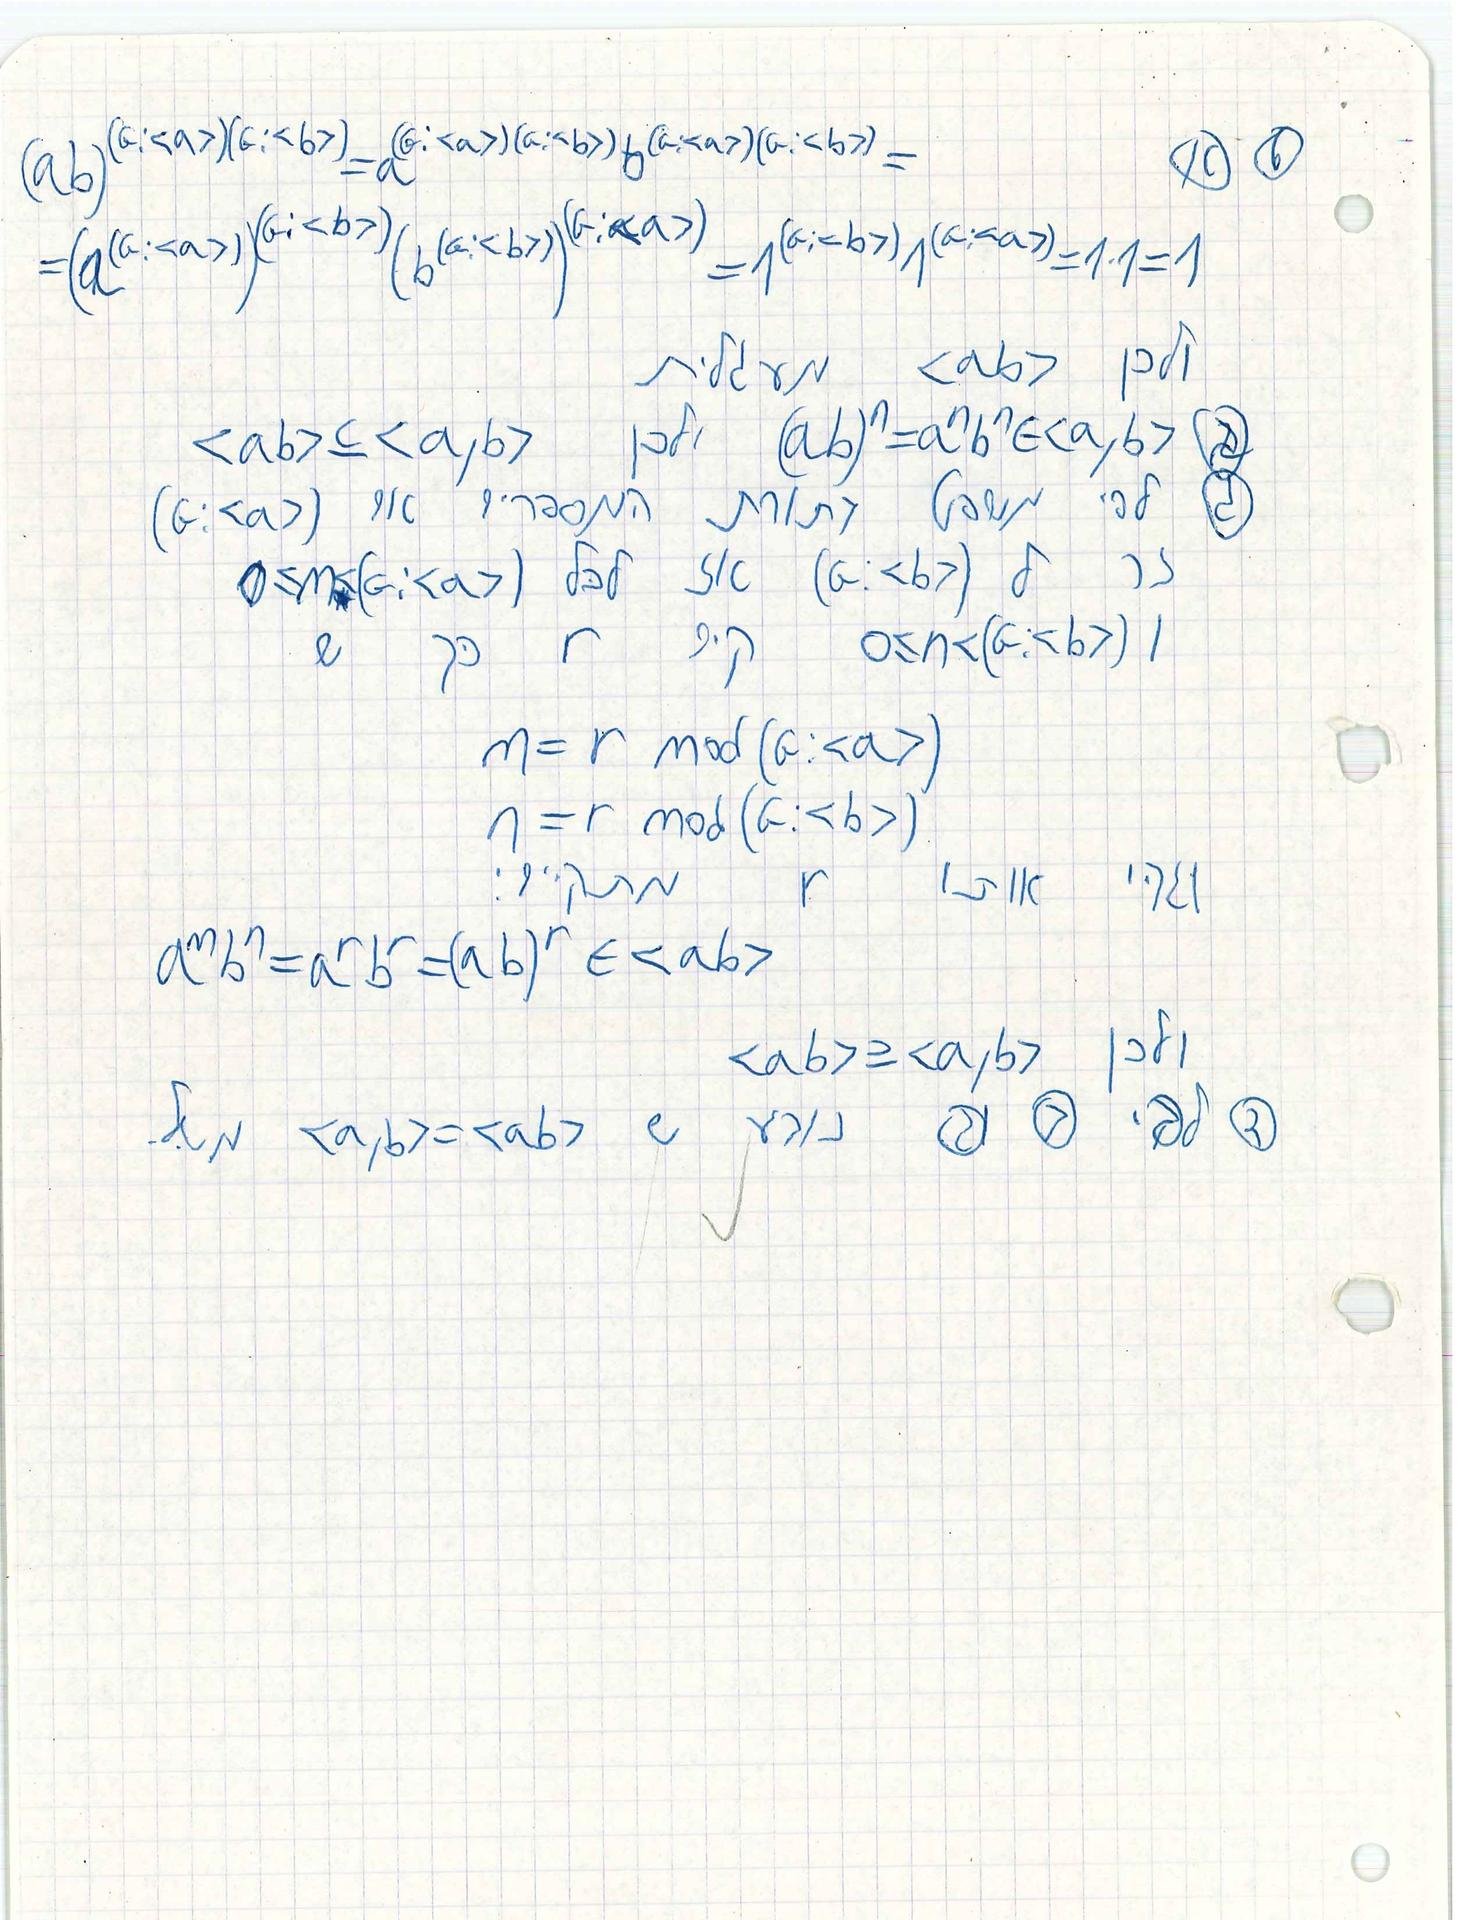 6 א (ab)^{(G:<a>)(G:<b>)}=a^{(G:<a>)(G:<b>)}b^{(G:<a>)(G:<b>)}=
=(a^{(G:<a>)})^{(G:<b>)}(b^{(G:<b>)})^{(G:<a>)}=1^{(G:<b>)}1^{(G:<a>)}=1·1=1
ולכן <ab> מעגלית
ב (ab)^n=a^nb^n∈<a,b> ולכן <ab>⊆<a,b>
ג לפי משפט בתורת המספרים אם (G:<a>)
זר ל (G:<b>) אז לכל 0≤m<(G:<a>)
ו 0≤n<(G:<b>) קיים r כך ש
m=r mod(G:<a>)
n=r mod(G:<b>)
ולגבי אותו r מתקיים:
a^mb^n=a^rb^r=(ab)^r∈<ab>
ולכן <ab>⊇<a,b>
ד לפי ב וג נובע ש <a,b>=<ab> משל.